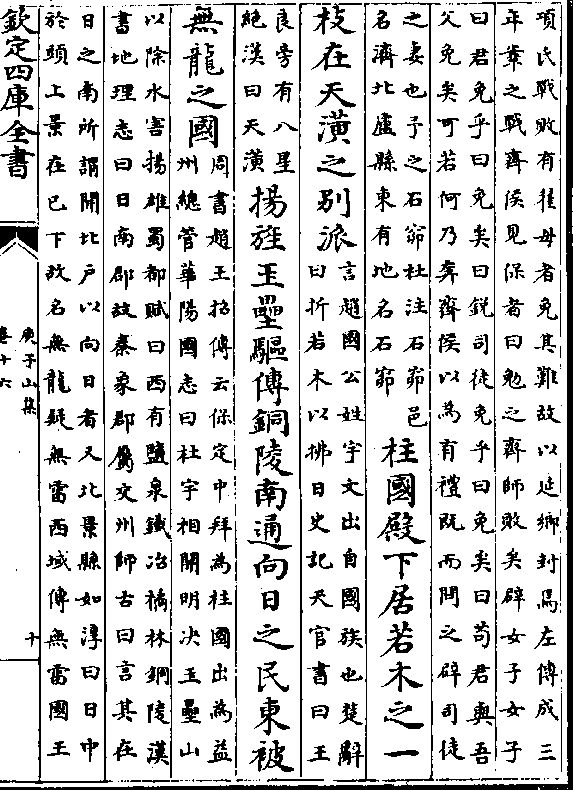 項氏戰敗有翟母者免其難故以延鄉封焉左傳成三
年鞌之戰齊侯見保者曰勉之齊師敗矣辟女子女子
曰君免乎曰免矣曰銳司徒免乎曰免矣曰苟君與吾
父免矣可若何乃奔齊侯以為有禮既而問之辟司徒
之妻也予之石窌杜注石窌邑
名濟北盧縣東有地名石窌
柱國殿下居若木之一
枝在天潢之别派
言趙國公姓宇文出自國族也楚辭
曰折若木以拂日史記天官書曰王
良旁有八星
絶漢曰天潢
揚旌玉壘驅傳銅陵南通向日之民東被
無龍之國
周書趙王招傳云保定中拜為柱國出為益
州總管華陽國志曰杜宇相開明决玉壘山
以除水害揚雄蜀都賦曰西有鹽泉鐵冶橘林銅陵漢
書地理志曰日南郡故秦象郡屬交州師古曰言其在
日之南所謂開北戶以向日者又北景縣如淳曰日中
於頭上景在已下故名無龍疑無雷西域傳無雷國王
欽定四庫全書
庾子山集
卷十六
十